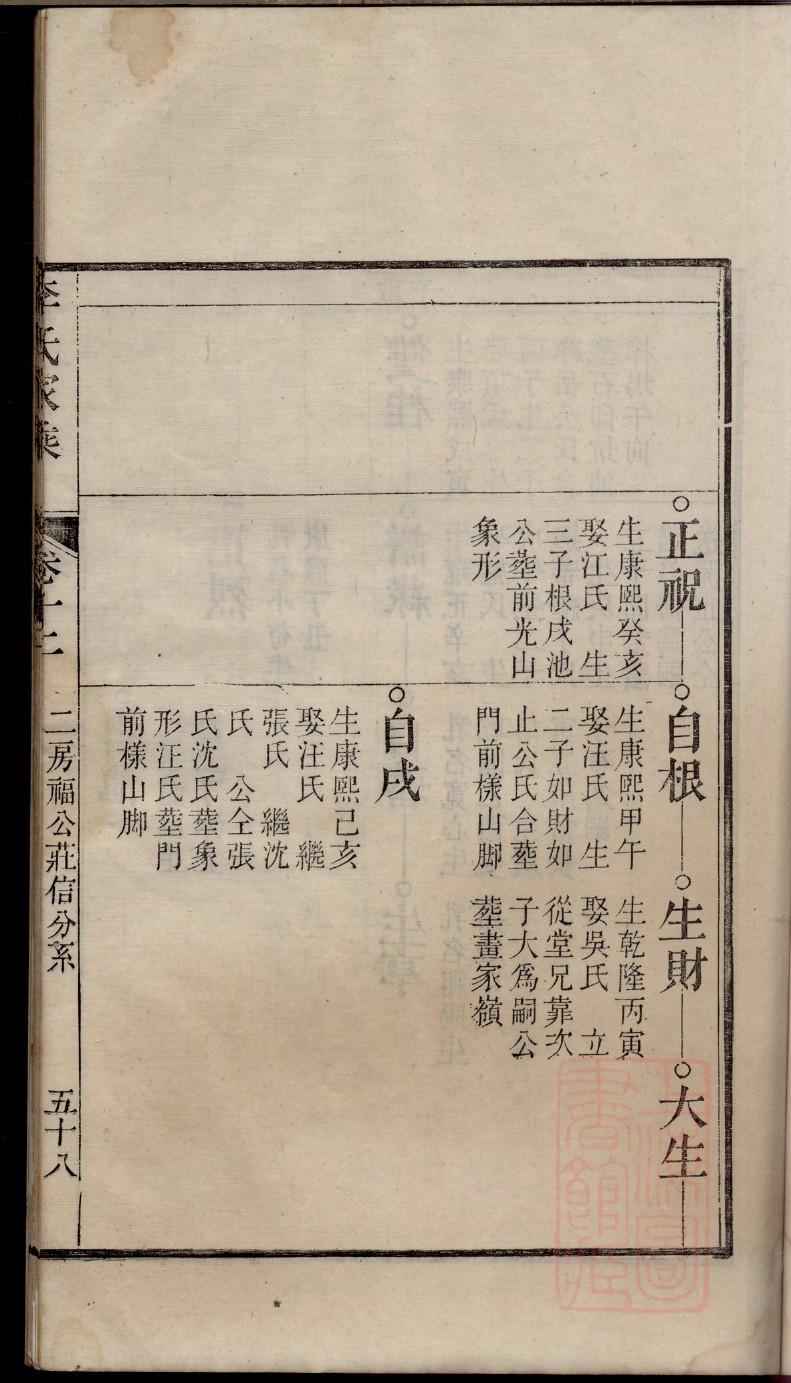 ○正祝
生康熙癸亥
娶江氏 生
三子根戌池
公塟前光山
象形
○自根
生康熙甲午
娶汪氏 生
二子如財如
止公氏合塟
門前樣山脚
○生財
生乾隆丙寅
娶吳氏 立
從堂兄靠次
子大爲嗣公
塟畫家嶺
○大生
○自戌
生康熙己亥
娶汪氏 繼
張氏 繼沈
氏 公仝張
氏沈氏塟象
形汪氏塟門
前樣山脚
李氏家乘
卷十二
二房福公莊信分系
五十八